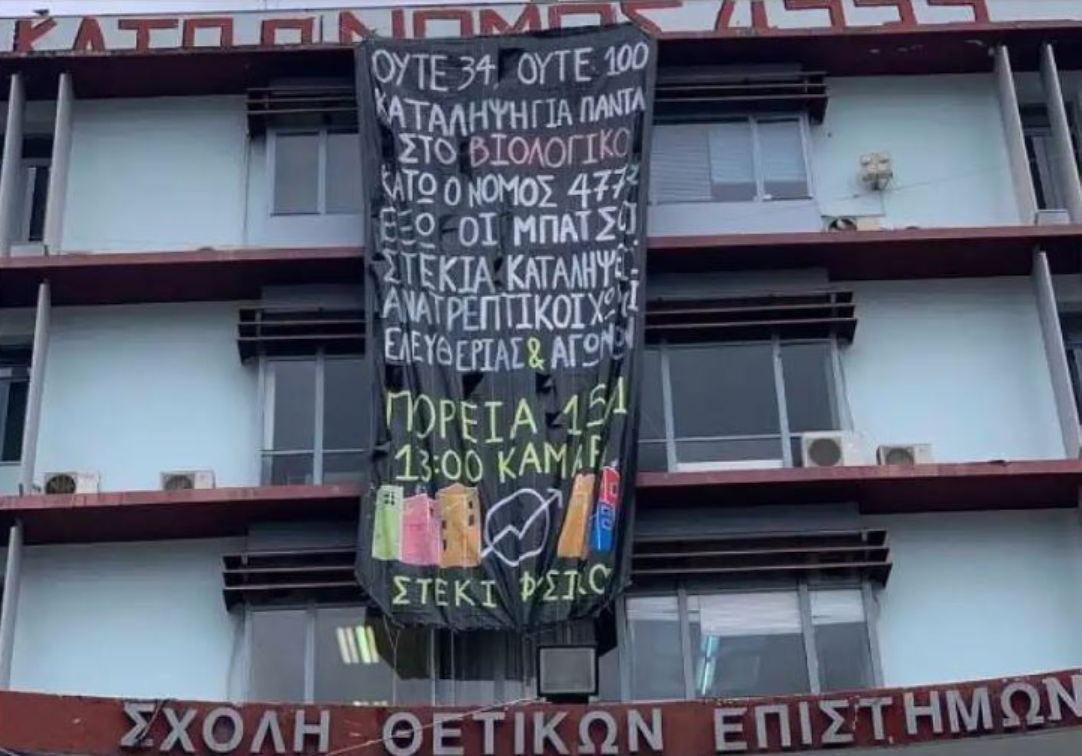 ΚΑΤΩ Ο ΝΟΜΟΣ 4999
ΟΥΤΕ 34, ΟΥΤΕ 100
ΚΑΤΑΛΗΨΗ ΓΙΑ ΠΑΝΤΑ
ΣΤΟ ΒΙΟΛΟΓΙΚΟ
ΚΑΤΩ Ο ΝΟΜΟΣ 4777
ΕΞΩ ΟΙ ΜΠΑΤΣΟΙ
ΣΤΕΚΙΑ ΚΑΤΑΛΗΨΕΙΣ
ΑΝΑΤΡΕΠΤΙΚΟΙ ΧΩΡΟΙ
ΕΛΕΥΘΕΡΙΑΣ & ΑΓΩΝΩΝ
ΠΟΡΕΙΑ 15/1
13:00 ΚΑΜΑΡΑ
ΣΤΕΚΙ ΦΥΣΙΚΟ
ΣΧΟΛΗ ΘΕΤΙΚΩΝ ΕΠΙΣΤΗΜΩΝ